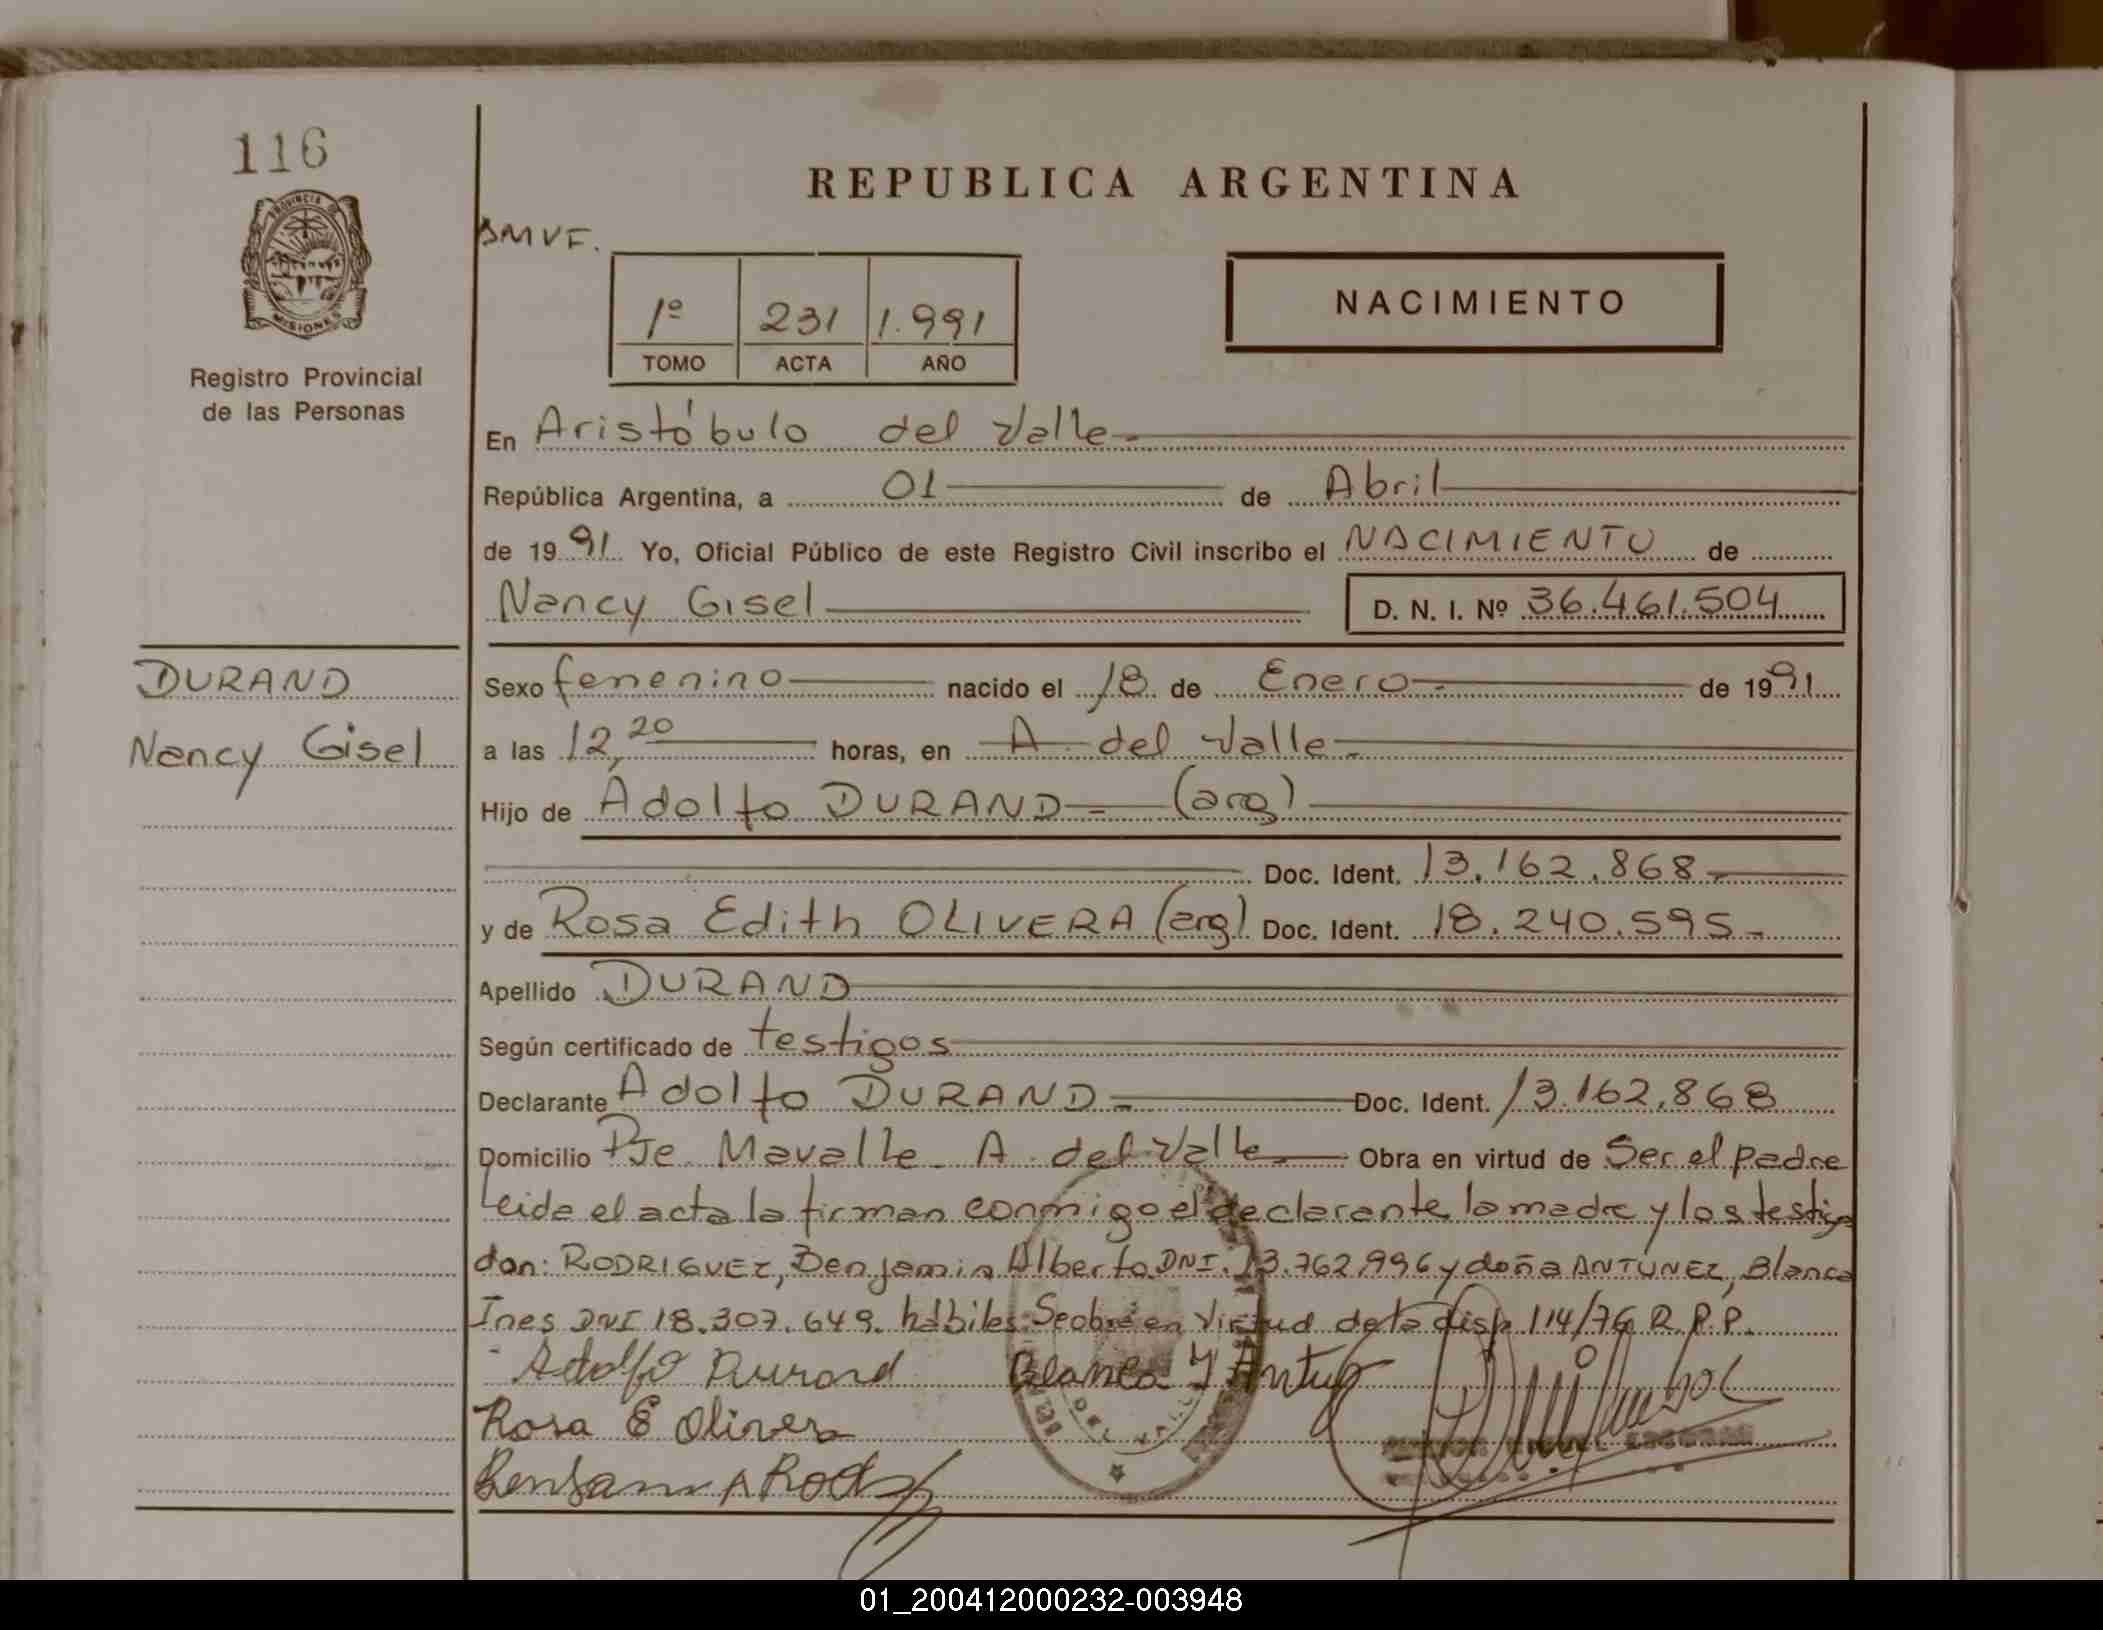 116
PROVINCIA DE
MISIONES
Registro Provincial
de las Personas
REPUBLICA ARGENTINA
SMVF.
1º 231 1.991
TOMO ACTA AÑO
NACIMIENTO
En Aristóbulo del Valle.
República Argentina, a 01 de Abril
de 1991 Yo, Oficial Público de este Registro Civil inscribo el NACIMIENTO de
Nancy Gisel D. N. I. Nº 36.461.504
DURAND
Nancy Gisel
Sexo femenino nacido el 18 de Enero de 1991
a las 12,20 horas, en A. del Valle.
Hijo de Adolfo DURAND (arg)
Doc. Ident. 13.162.868
y de Rosa Edith OLIVERA (arg) Doc. Ident. 18.240.595
Apellido DURAND
Según certificado de testigos
Declarante Adolfo DURAND Doc. Ident. 13.162.868
Domicilio Pje Mavalle A. del Valle Obra en virtud de Ser el padre
Leida el acta la firman conmigo el declarante la madre y los testigo
don: RODRIGUEZ, Benjamin Alberto DNI. 13.762.996 y doña ANTUNEZ, Blanca
Ines DNI 18.307.649. hábiles. Se obra en Virtud de la disp. 114/76 R.P.P.
Adolfo Durand Blanca Y Antu
Rosa E Olivera
Benjamin A Rod
01_200412000232-003948